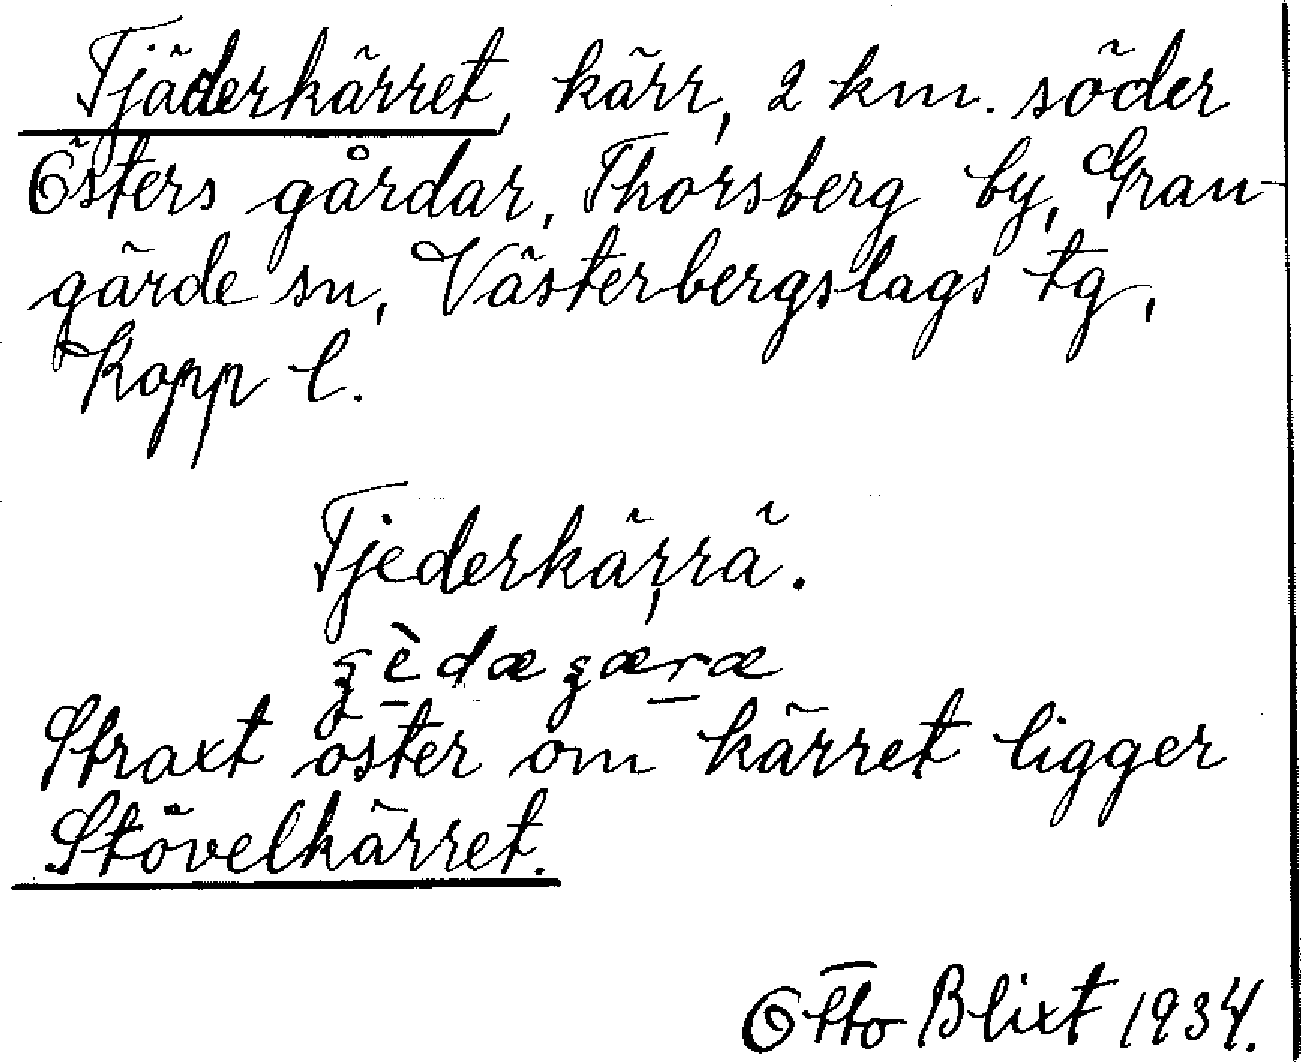 Tjäderkärret, kärr, 2 km. söder
Östers gårdar, Thorsberg by, Gran-
gärde sn, Västerbergslags tg,
Kopp l.
Tjederkärrä.
Straxt öster om kärret ligger
Stövelkärret.
Otto Blixt 1934.